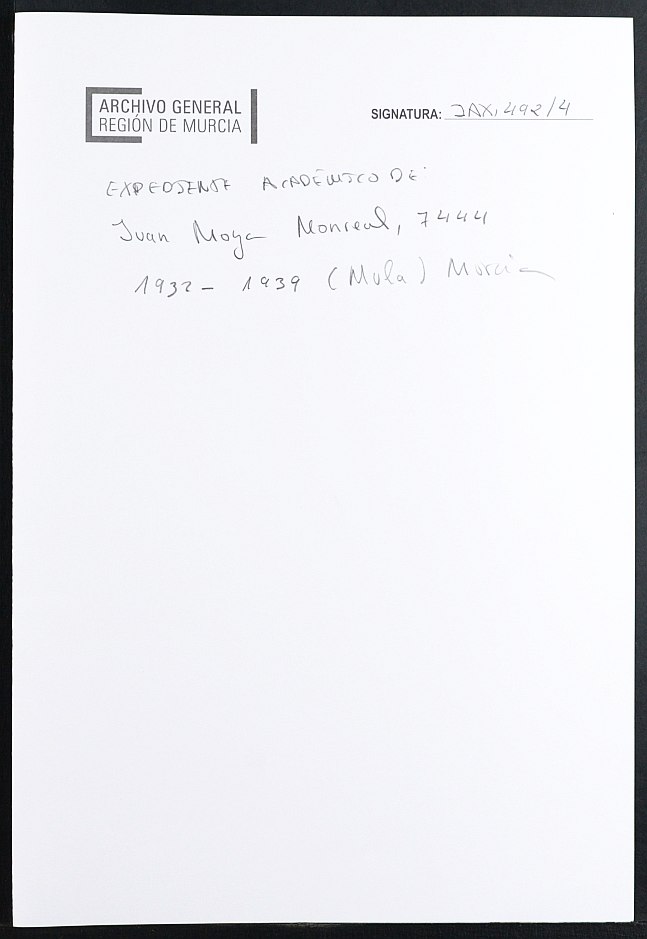 ARCHIVO GENERAL
REGIÓN DE MURCIA
SIGNATURA: JAX, 492/4
EXPEDIENTE ACADÉMICO DE:
Juan Moya Monreal, 7444
1932 - 1939 (Mula) Murcia